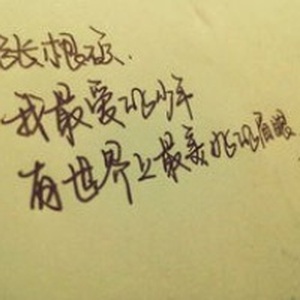 张根硕.
我最爱的少年
有世界上最美好的眉眼